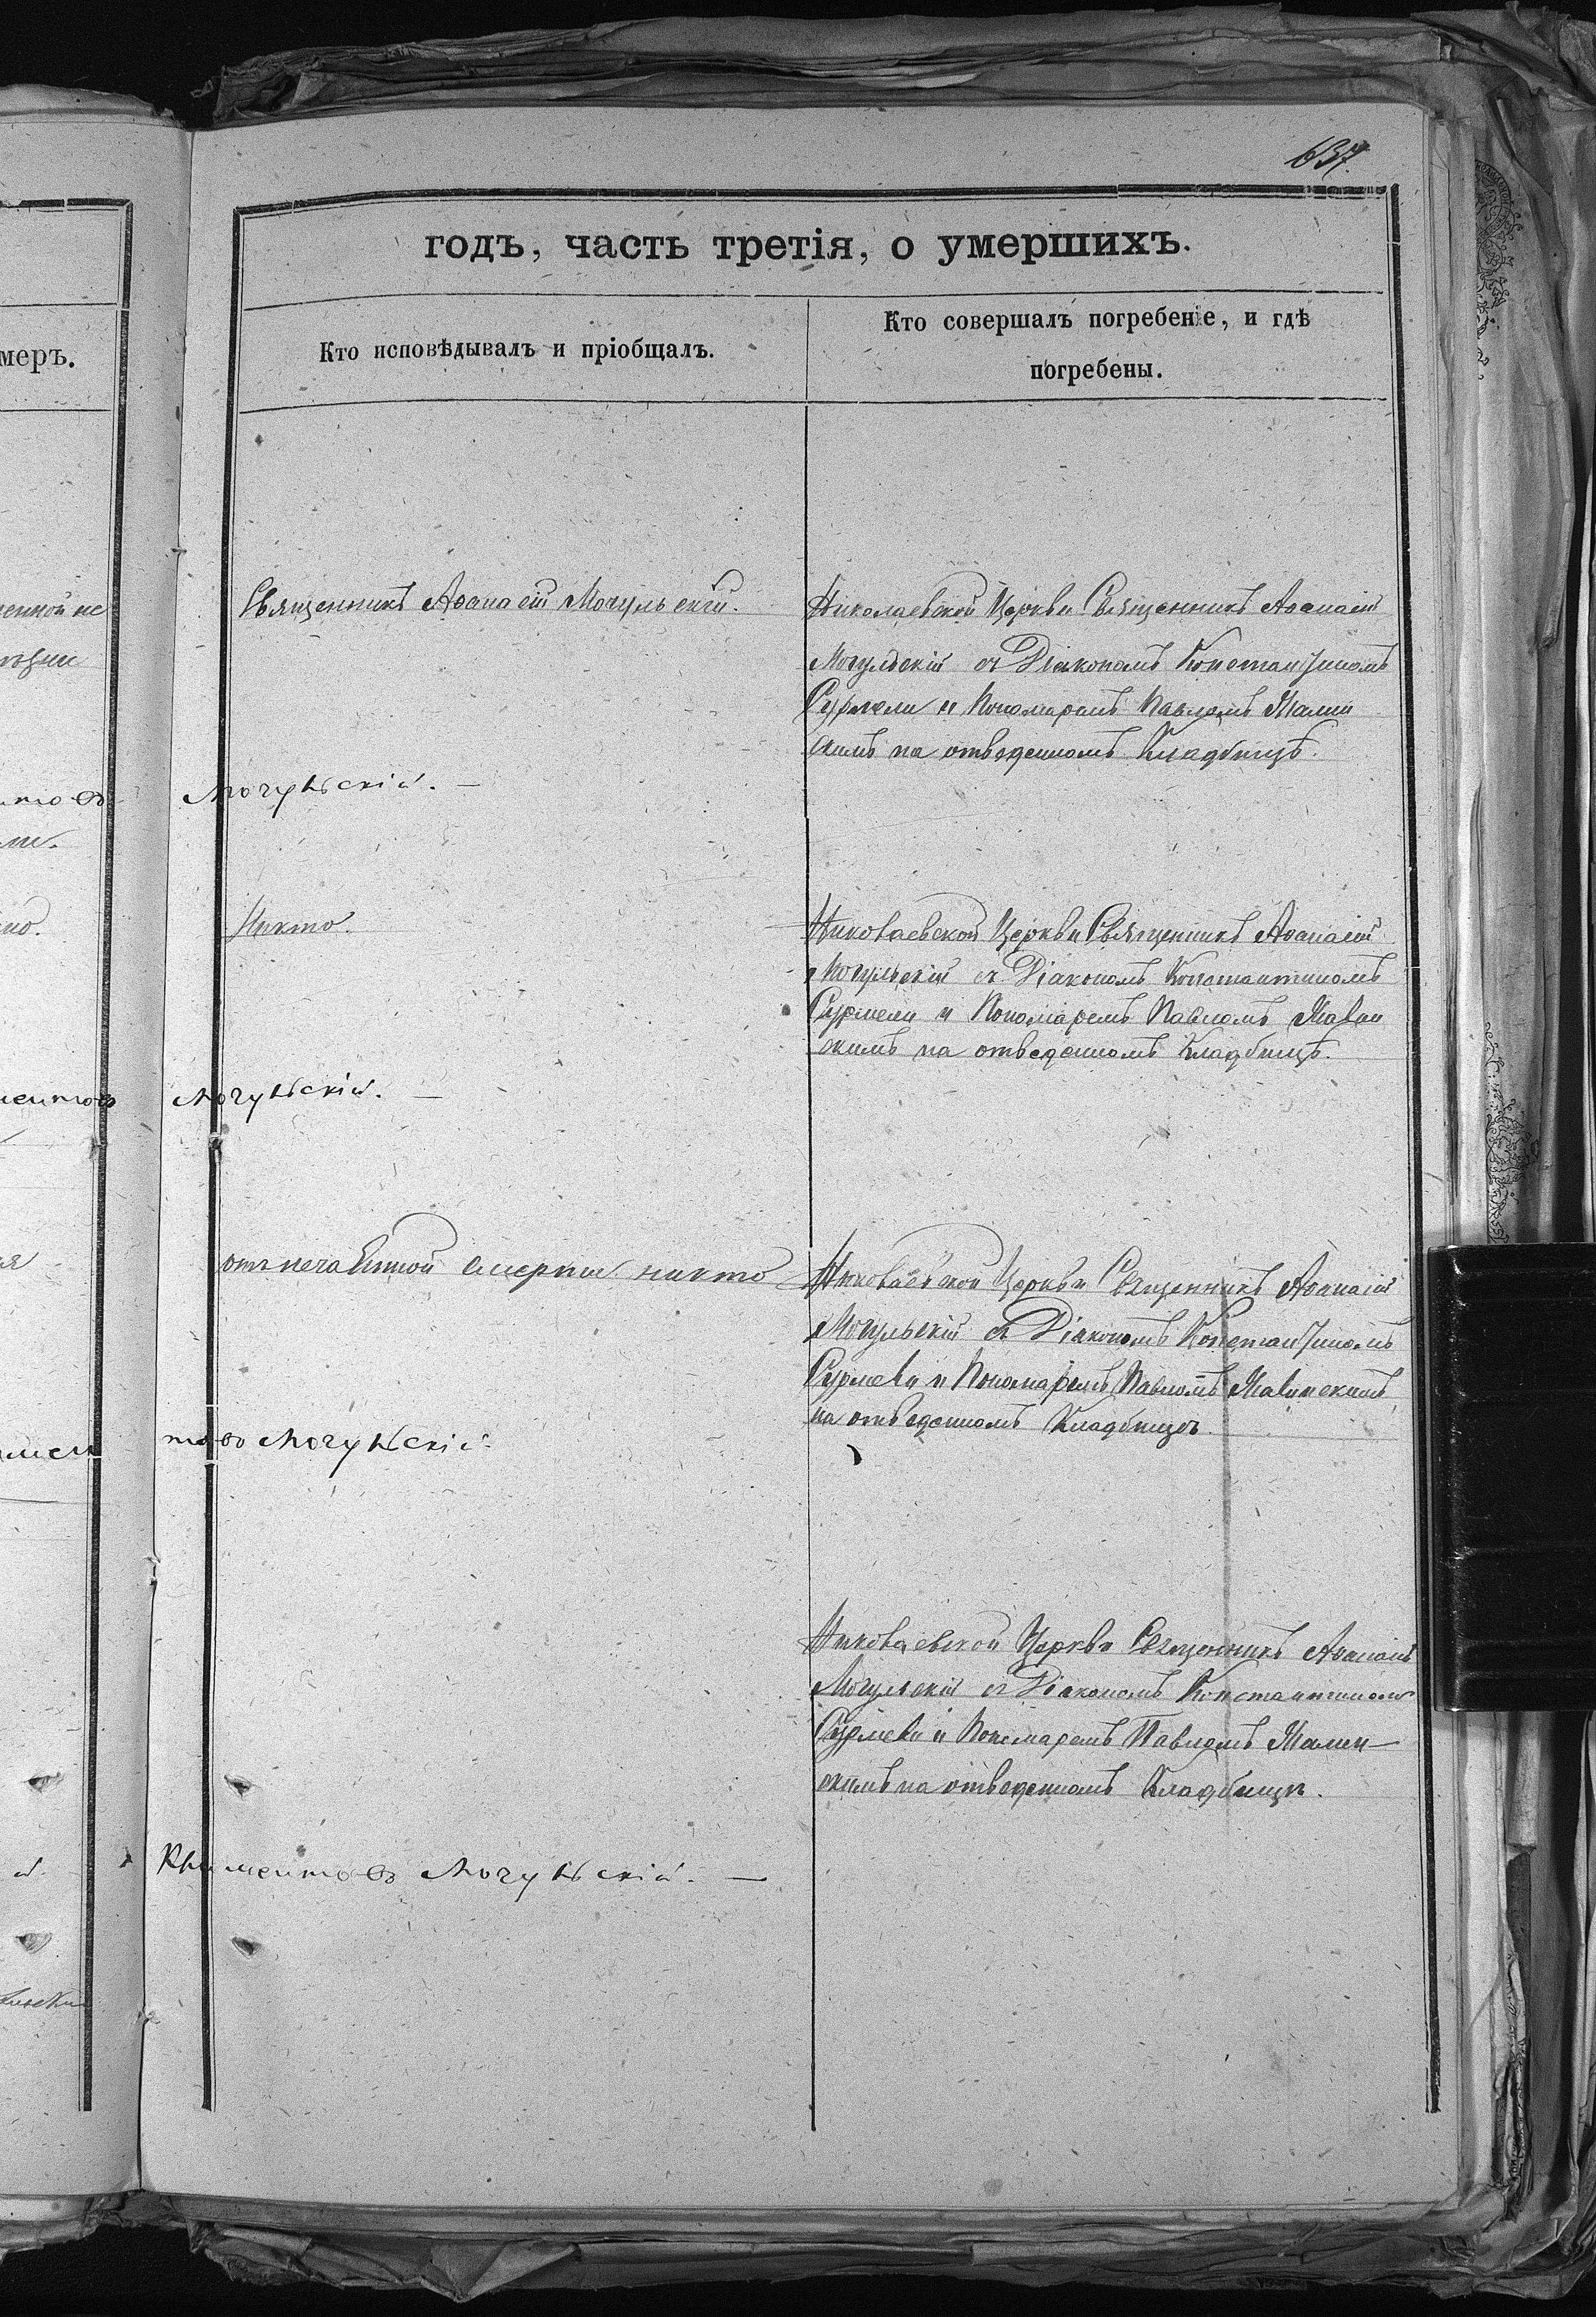 637.
годъ, часть третія, о умершихъ.
меръ.
Кто исповѣдывалъ и пріобщалъ.
Кто совершалъ погребеніе, и гдѣ
погребены.
Священникъ Аѳанасій Могульскій.
Николаевской Церкви Священникъ Аѳанасій
Могульскій съ Діакономъ Константиномъ
Сурмели и Пономаремъ Павломъ Малин
скимъ на отведенномъ Кладбищѣ.
Могульскій. —
Никто.
Николаевской Церкви Священникъ Аѳанасій
Могульскій съ Діакономъ Константиномъ
Сурмели и Пономаремъ Павломъ Малин
скимъ на отведенномъ Кладбищѣ.
Могульскій. —
отъ нечаянной смерти никто
Николаевской Церкви Священникъ Аѳанасій
Могульскій съ Діакономъ Константиномъ
Сурмели и Пономаремъ Павломъ Малинскимъ
на отведенномъ Кладбищѣ.
товъ Могульскій.
Николаевской Церкви Священникъ Аѳанасій
Могульскій съ Діакономъ Константиномъ
Сурмели и Пономаремъ Павломъ Малин—
скимъ на отведенномъ Кладбищѣ.
Климентовъ Могульскій. —